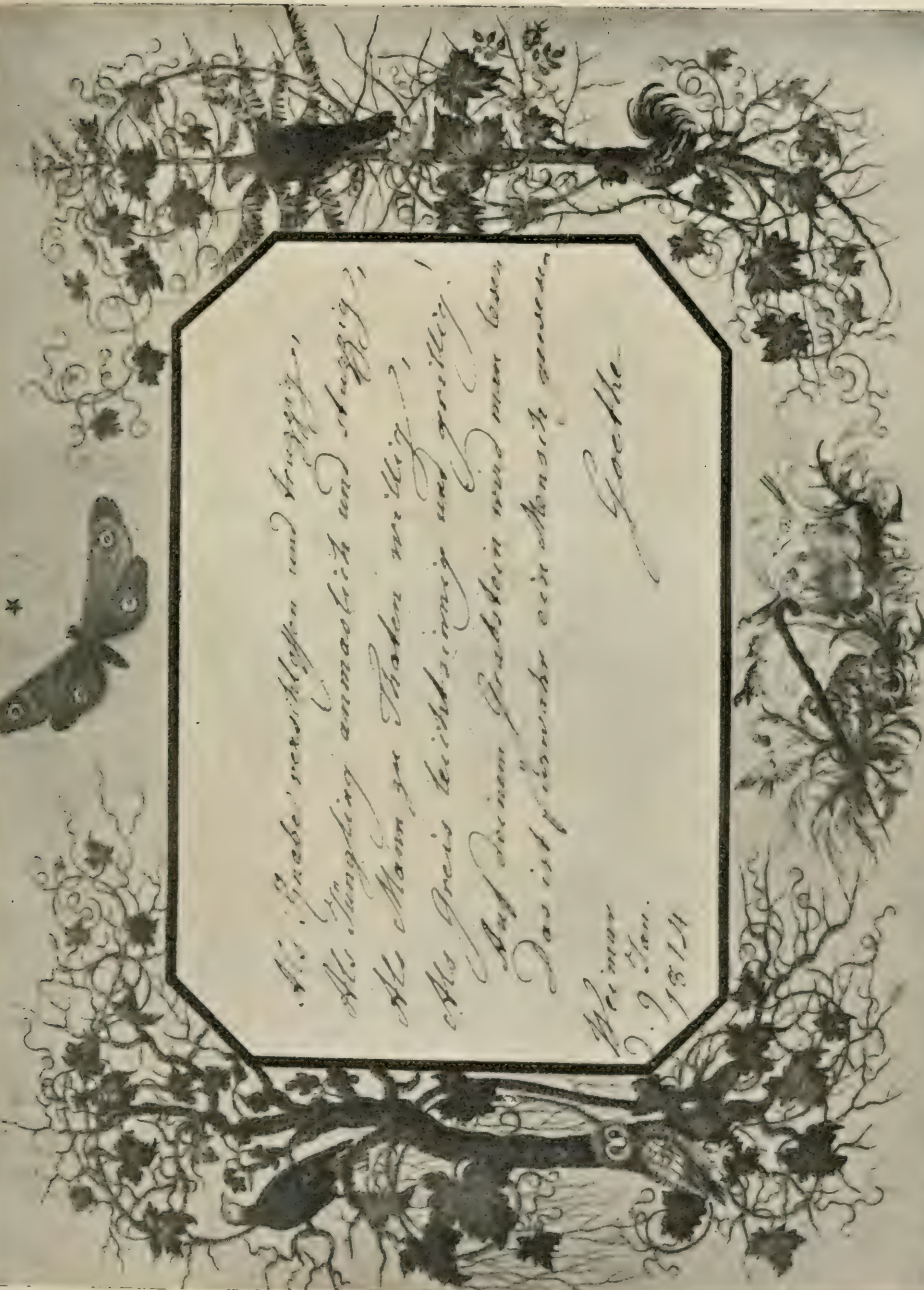 Als Knabe verschlossen und truzzig,
Als Jüngling anmaslich und stuzzig,
Als Mann zu Thaten willig,
Als Greis leichtsinnig und grillig!
Auf deinem Grabstein wird man lesen
Das ist fürwahr ein Mensch gewesen
Weimar Goethe
d. 9 Jan.
1814